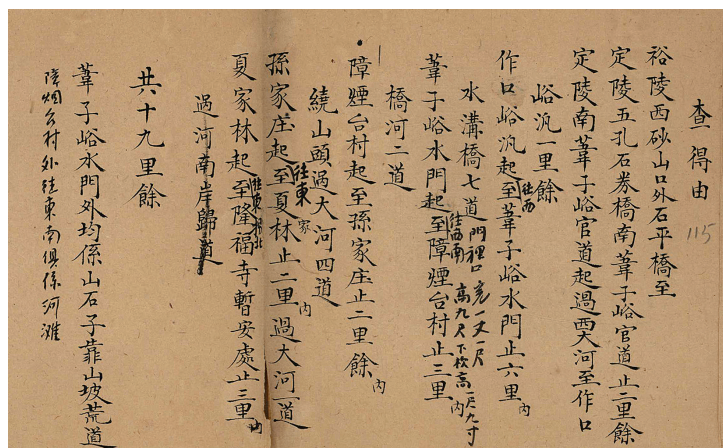 查得由
裕陵西砂山口外石平橋至
定陵五孔石券橋南葦子峪官道止二里餘
定陵南葦子峪官道起過西大河至作口
峪汛一里餘
作口峪汛起往西至葦子峪水門止六里內
水溝橋七道 門裡口寬一丈一尺 高九尺下檻高一尺九寸
葦子峪水門起往西南至障煙台村止三里內
橋河二道
障煙台村起至孫家庄止二里餘內
繞山頭過大河四道
孫家庄起往東至夏家林止二里內過大河一道
夏家林起往東北至隆福寺暫安處止三里內
過河南岸歸道
共十九里餘
葦子峪水門外均係山石子靠山坡荒道
障烟台村外往東南俱係河灘
115